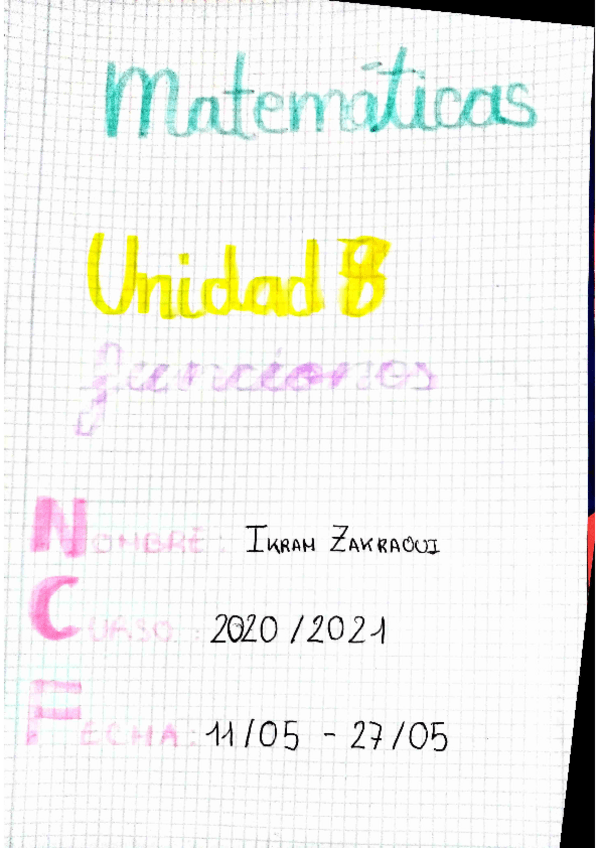 Matemáticas
Unidad 8
funciones
NOMBRE: IKRAM ZAKRAOUI
CURSO: 2020/2021
FECHA: 11/05 - 27/05